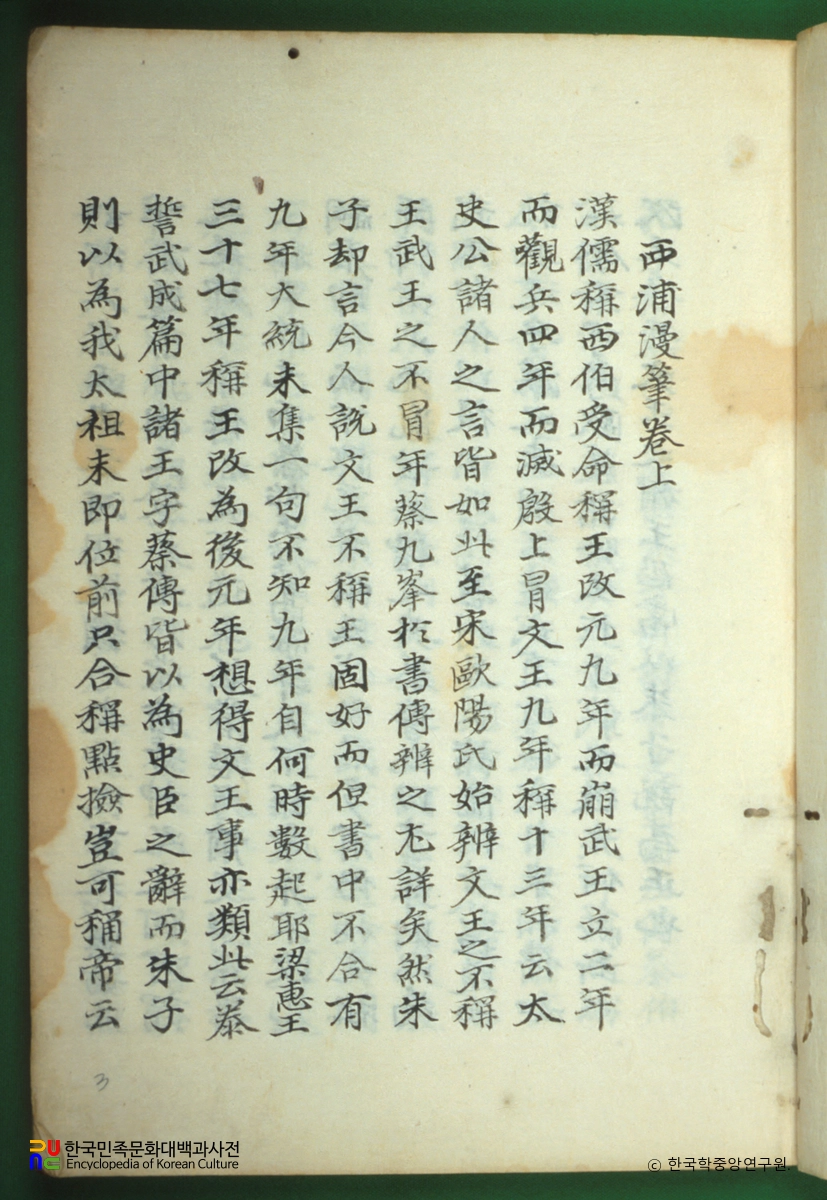 西浦漫筆卷上
漢儒稱西伯受命稱王改元九年而崩武王立二年
而觀兵四年而滅殷上冒文王九年稱十三年云太
史公諸人之言皆如此至宋歐陽氏始辨文王之不稱
王武王之不冒年蔡九峯於書傳辨之尤詳矣然朱
子却言今人說文王不稱王固好而但書中不合有
九年大統未集一句不知九年自何時數起耶梁惠王
三十七年稱王改為後元年想得文王事亦類此云泰
誓武成篇中諸王字蔡傳皆以為史臣之辭而朱子
則以為我太祖未即位前只合稱點撿豈可稱帝云
3
한국민족문화대백과사전
Encyclopedia of Korean Culture
© 한국학중앙연구원.